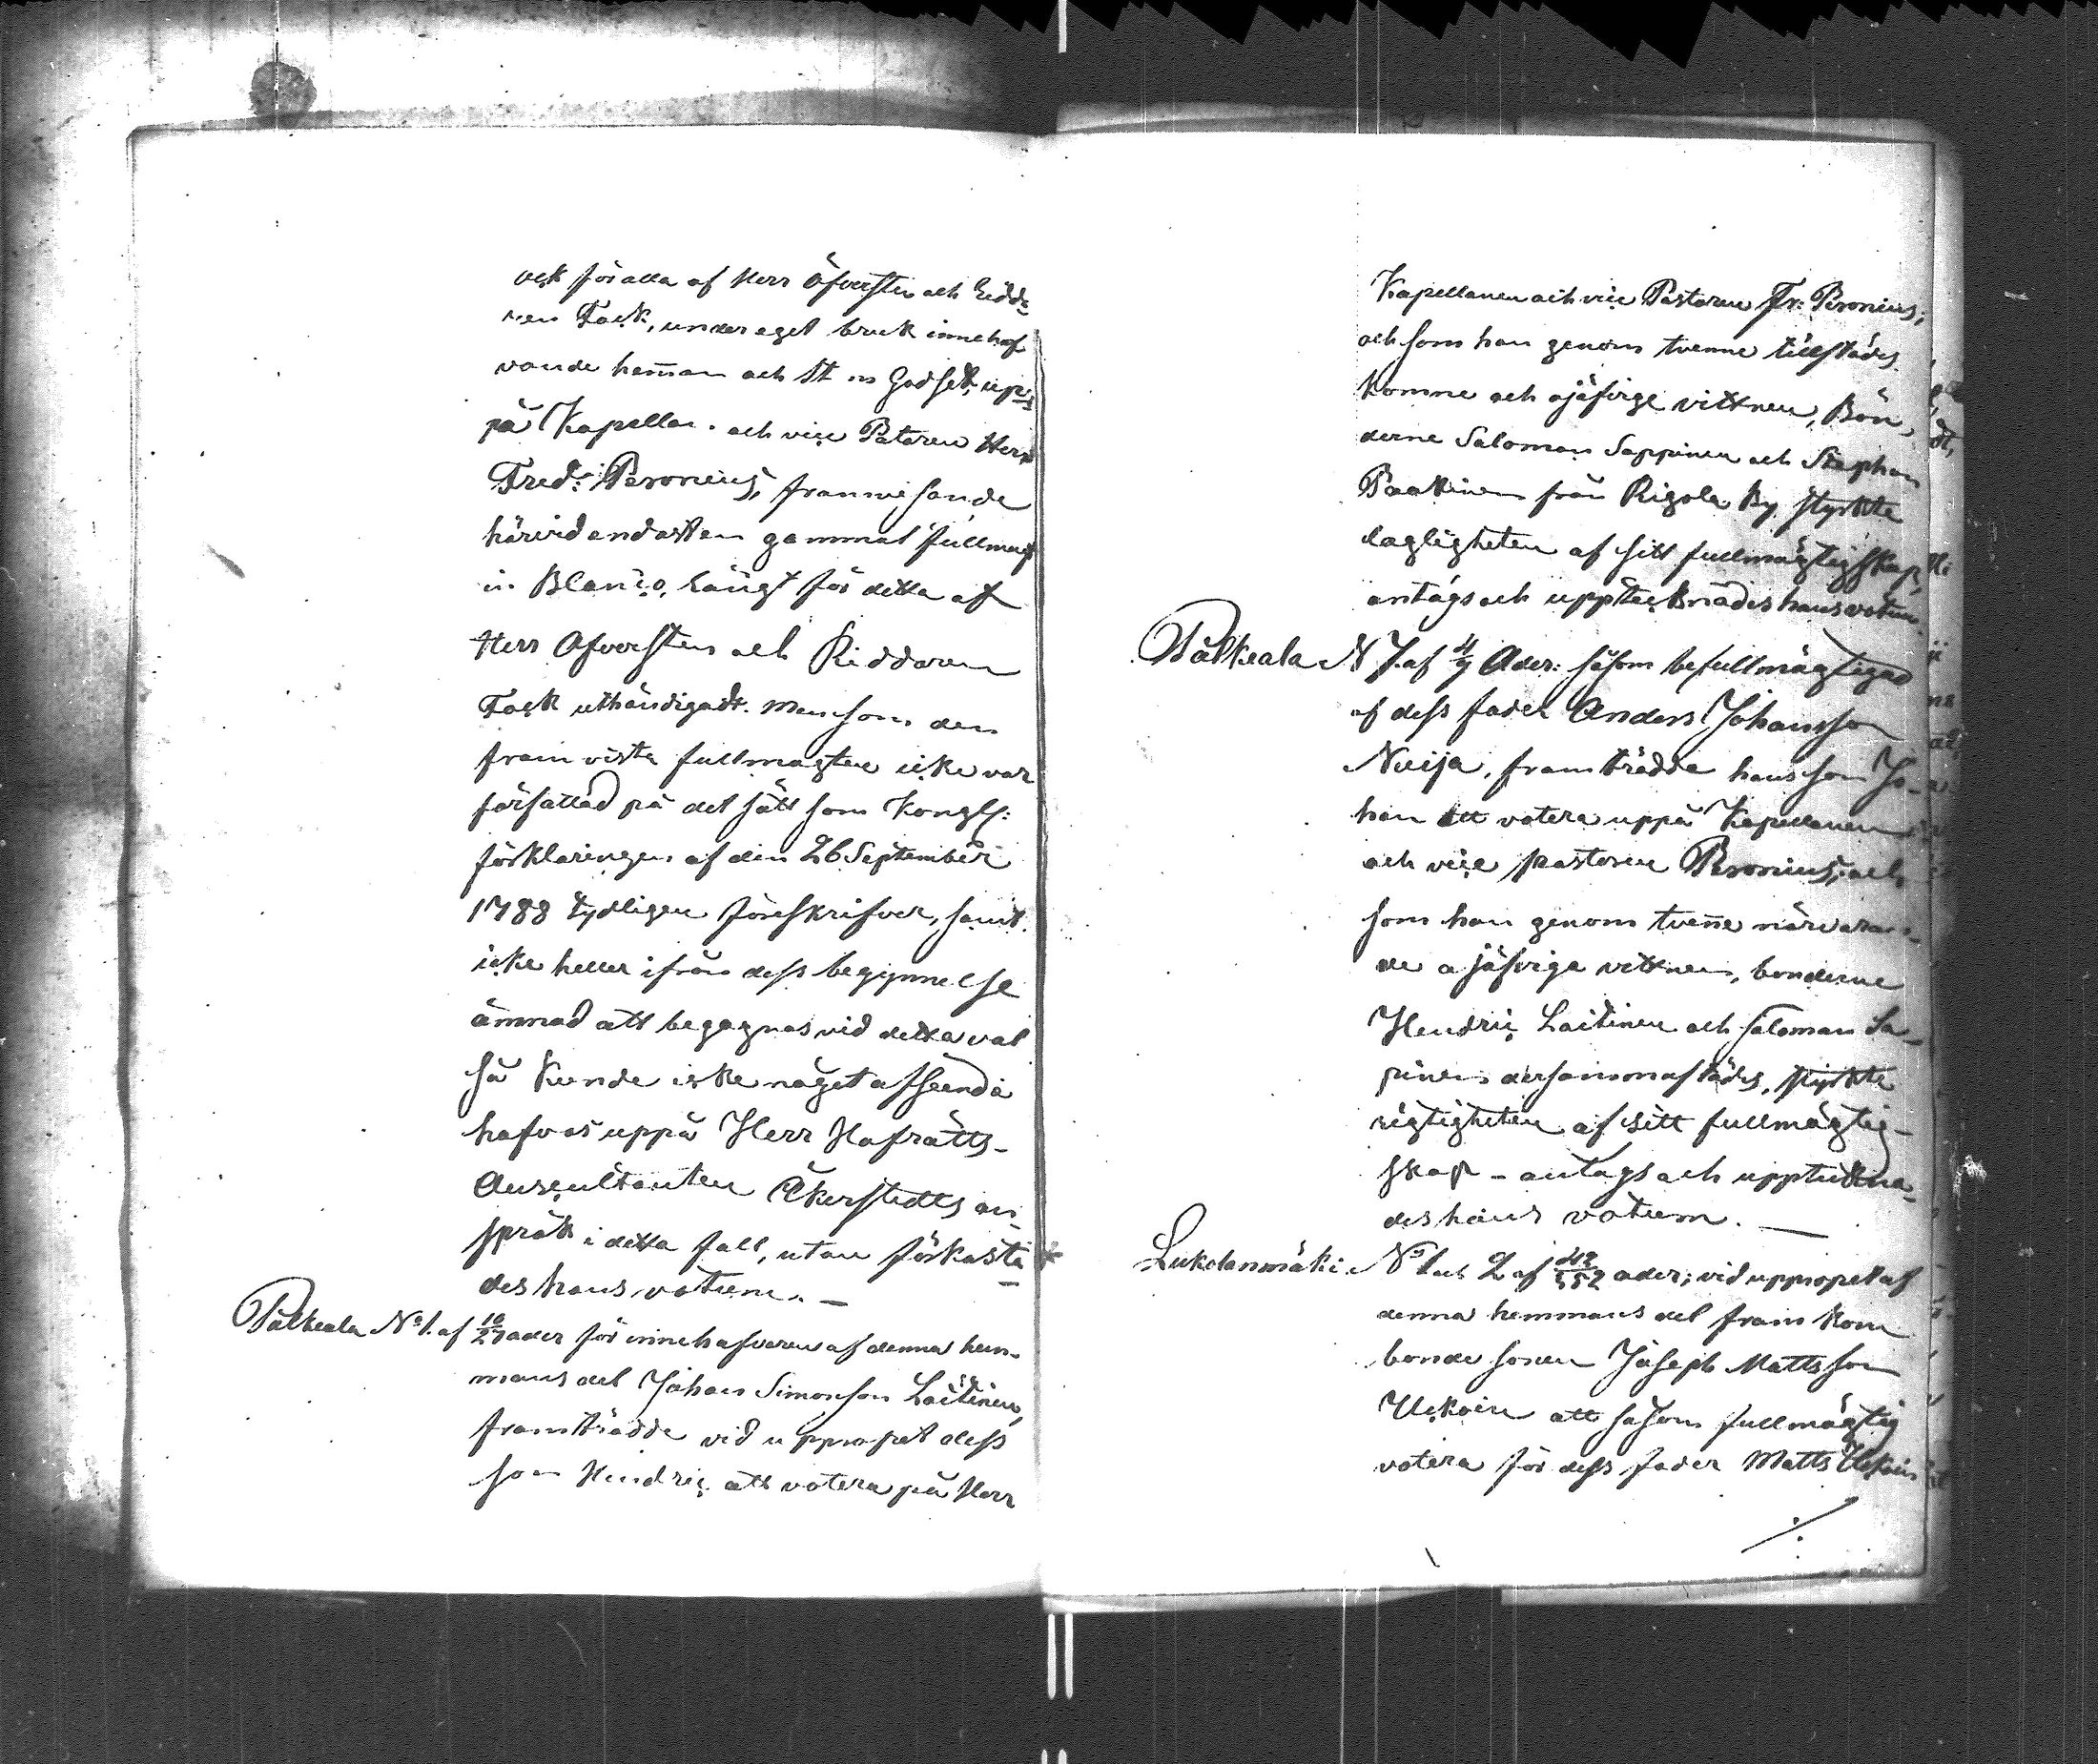 ock för alla af Herr Öfversten och Ridda
ren Fock, under eget bruk innehaf
vande hem̅an och St m Godset, up=
på Kapellan. och vice Patoren Herr
Fred: Peronius, framvisande
härvid endast en gammal fullmagt
in Blanco, längst för detta af
Herr Öfversten och Riddaren
Fock uthändigadt. Men som den
framviste fullmagten icke var
författad på det sätt som Kongl:
förklaringen af den 26 September
1788 tydligen föreskrifver, samt
icke heller ifrån dess begynnelse
ämnad att begagnas vid detta val
så kunde icke något afseende
hafvas uppå Herr Hofrätts-
Auscultanten Åkerstedts an-
språk i detta fall, utan förkasta
des hans votum. —
Pälkeala No 1. af 10/27 ader för innehafvaren af denna hem-
mans del Johan Simonson Laitinen,
framträdde vid uppropet dess
son Hendric att votera på Herr
Kapellanen och vice Pastoren Fr: Peronius;
och som han genom tvenne tillstädes
komne och ojäfvige vittnen, Bön-
derne Salomon Sappinen och Stephan
Paakinen från Rigola By styrkte
lagligheten af sitt fullmägtigskap,
antogs och upptecknades hans votum.
Pälkeala N 7. af 4/9 Ader: såsom befullmägtigad
af dess fader Anders Johansson
Nuija, framträdde hans son Jo-
han att votera uppå Kapellanen
och vice pastoren Peronius; och
som han genom tven̅e närvaran-
de ojäfviga vittnen, bönderne
Hendric Laitinen och Saloman Sa-
pinen dersammastädes, styrkte
rigtigheten af sitt fullmägtig-
skap - antogs och uppteckna-
des hans votum. —
Lukolanmäki No 1 och 2 af 42/552 ader; vid uppropet af
denna hemmans del fram kom
bonde sonen Joseph Mattsson
Ukkoin att såsom fullmägtig
votera för dess fader Matts Ukkoin
./.